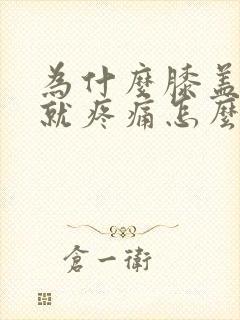 為什麼膝蓋
就疼痛怎麼
倉一衛